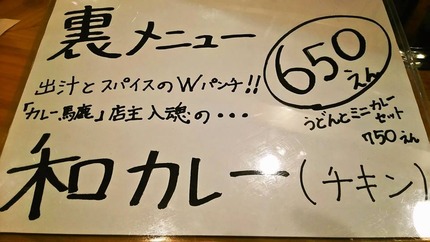 裏メニュー
650えん
出汁とスパイスのWパンチ!!
「カレー馬鹿」店主入魂の・・・
うどんとミニカレー
セット
750えん
和カレー(チキン)